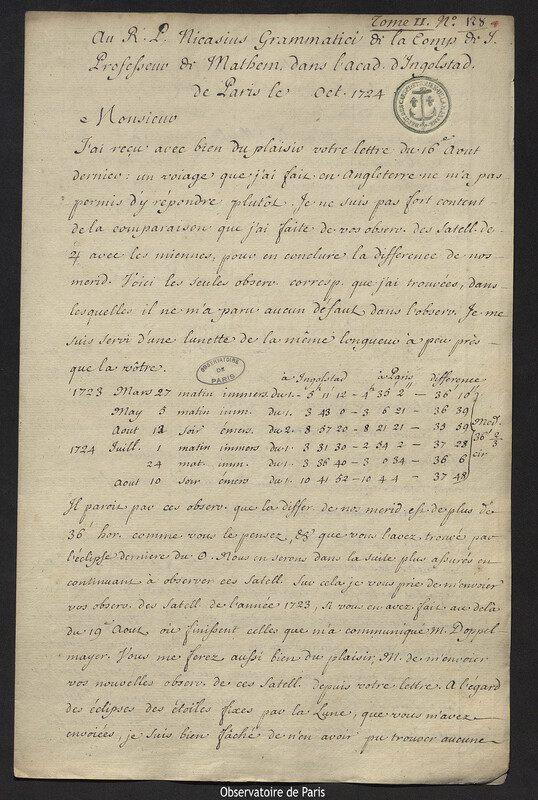 Tome II. Nº. 128
Au R. P. Nicasius Grammatici de la Comp de J.
Professeur de Mathem. dans l'acad. d'Ingolstad.
de Paris le Oct. 1724
Monsieur
J'ai reçu avec bien du plaisir votre lettre du 16e Aout
dernier: un voiage que j'ai fait en Angleterre ne m'a pas
permis d'y répondre plutôt. Je ne suis pas fort content
de la comparaison que j'ai faite de vos observ. des Satell. de
♃ avec les miennes, pour en conclure la difference de nos
merid. Voici les seules observ. corresp. que j'ai trouvées, dans
lesquelles il ne m'a paru aucun défaut dans l'observ. Je me
suis servi d'une lunette de la même longueur à peu près
que la vôtre.
OBSERVATOIRE DE PARIS
à Ingolstad à Paris difference
1723 Mars 27 matin immers. du 1. - 5h 11' 12 - 4h 35' 2" - 36' 10"
May 5 matin imm. du 1. 3 43 0 - 3 6 21 - 36 39
Aout 12 soir émers. du 2. 8 57 20 - 8 21 21 - 35 59
1724 Juill. 1 matin immers du 1. 3 31 30 - 2 54 2 - 37 28
24 mat. imm. du 1. 3 36 40 - 3 0 34 - 36 6
Aout 10 soir émers du 1. 10 41 52 - 10 4 4 - 37 48
Med. 36' 2/3 cir
Il paroit par ces observ. que la differ. de nos merid. est de plus de
36' hor. comme vous le pensez, & que vous l'avez trouvé par
l'éclipse derniere du ☉. Nous en serons dans la suite plus assurés en
continuant à observer ces Satell. Sur cela je vous prie de m'envoier
vos observ. des Satell de l'année 1723, si vous en avez fait au delà
du 19e Aout, où finissent celles que m'a communiqué M. Doppel-
mayer. Vous me ferez aussi bien du plaisir, M. de m'envoier
vos nouvelles observ. de ces Satell. depuis votre lettre. A l'égard
des éclipses des étoiles fixes par la Lune, que vous m'avez
envoiées, je suis bien fâché de n'en avoir pu trouver aucune
Observatoire de Paris